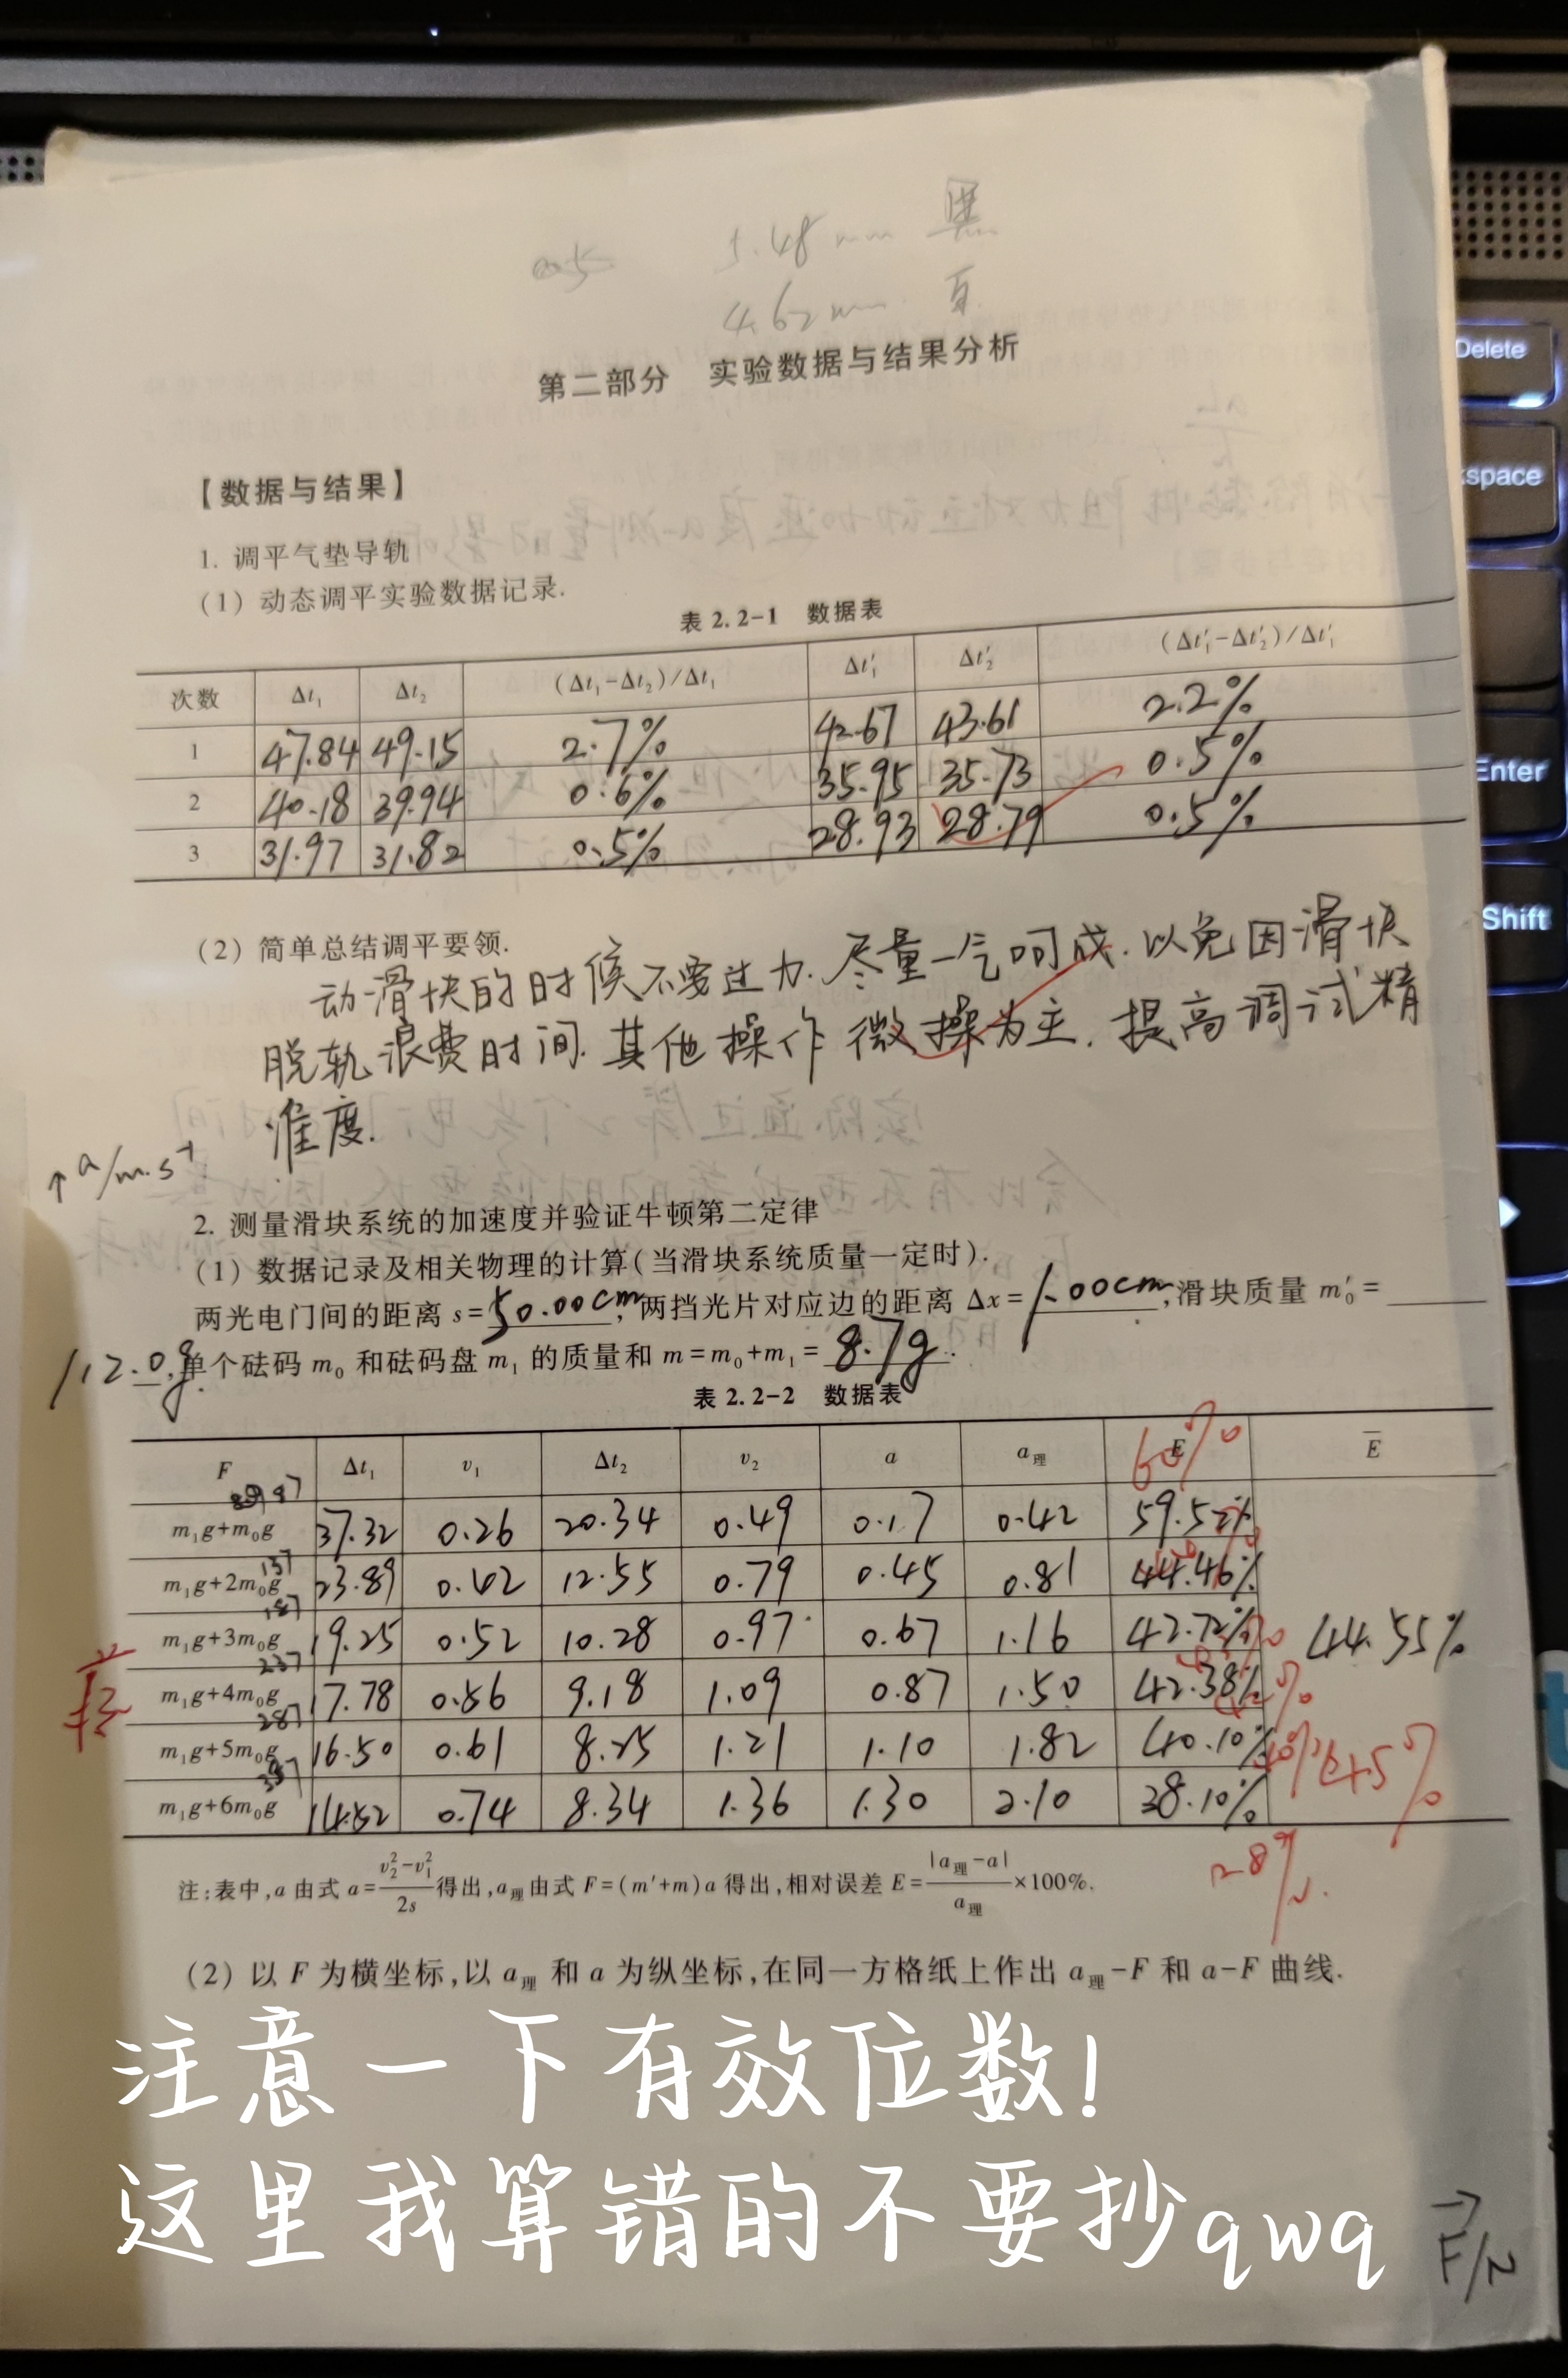 5.48mm 黑
4.62mm
第二部分 实验数据与结果分析
【数据与结果】
1. 调平气垫导轨
(1) 动态调平实验数据记录.
表 2.2-1 数据表
次数 Δt₁ Δt₂ (Δt₁-Δt₂)/Δt₁ Δt₁′ Δt₂′ (Δt₁′-Δt₂′)/Δt₁′
1 47.84 49.15 2.7% 42.67 43.61 2.2%
2 40.18 39.94 0.6% 35.95 35.73 0.5%
3 31.97 31.82 0.5% 28.93 28.79 0.5%
(2) 简单总结调平要领.
动滑块的时候不要过力.尽量一气呵成.以免因滑块
脱轨浪费时间.其他操作微操为主.提高调试精
准度.
↑a/m·s⁻¹
2. 测量滑块系统的加速度并验证牛顿第二定律
(1) 数据记录及相关物理的计算(当滑块系统质量一定时).
两光电门间的距离 s=50.00cm,两挡光片对应边的距离 Δx=1.00cm,滑块质量 m₀′=
112.0g,单个砝码 m₀ 和砝码盘 m₁ 的质量和 m=m₀+m₁=8.7g.
表 2.2-2 数据表
F Δt₁ v₁ Δt₂ v₂ a a理 E E̅
60%
87
m₁g+m₀g 37.32 0.26 20.34 0.49 0.17 0.42 59.52%
137
m₁g+2m₀g 23.89 0.42 12.55 0.79 0.45 0.81 44.46%
187
m₁g+3m₀g 19.25 0.52 10.28 0.97 0.67 1.16 42.72% 44.55%
237
m₁g+4m₀g 17.78 0.56 9.18 1.09 0.87 1.50 42.38%
287
m₁g+5m₀g 16.50 0.61 8.25 1.21 1.10 1.82 40.10% 40% 45%
m₁g+6m₀g 14.52 0.74 8.34 1.36 1.30 2.10 38.10%
注:表中,a 由式 a=(v₂²-v₁²)/2s 得出,a理 由式 F=(m′+m)a 得出,相对误差 E=|a理-a|/a理×100%.
(2) 以 F 为横坐标,以 a理 和 a 为纵坐标,在同一方格纸上作出 a理-F 和 a-F 曲线.
注意一下有效位数!
这里我算错的不要抄qwq
→
F/N
Delete
kspace
Enter
Shift